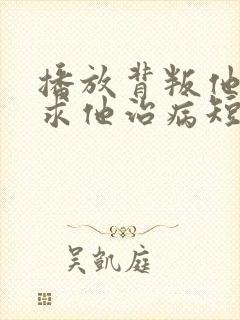 播放背叛他
求他治病短
吴凯庭